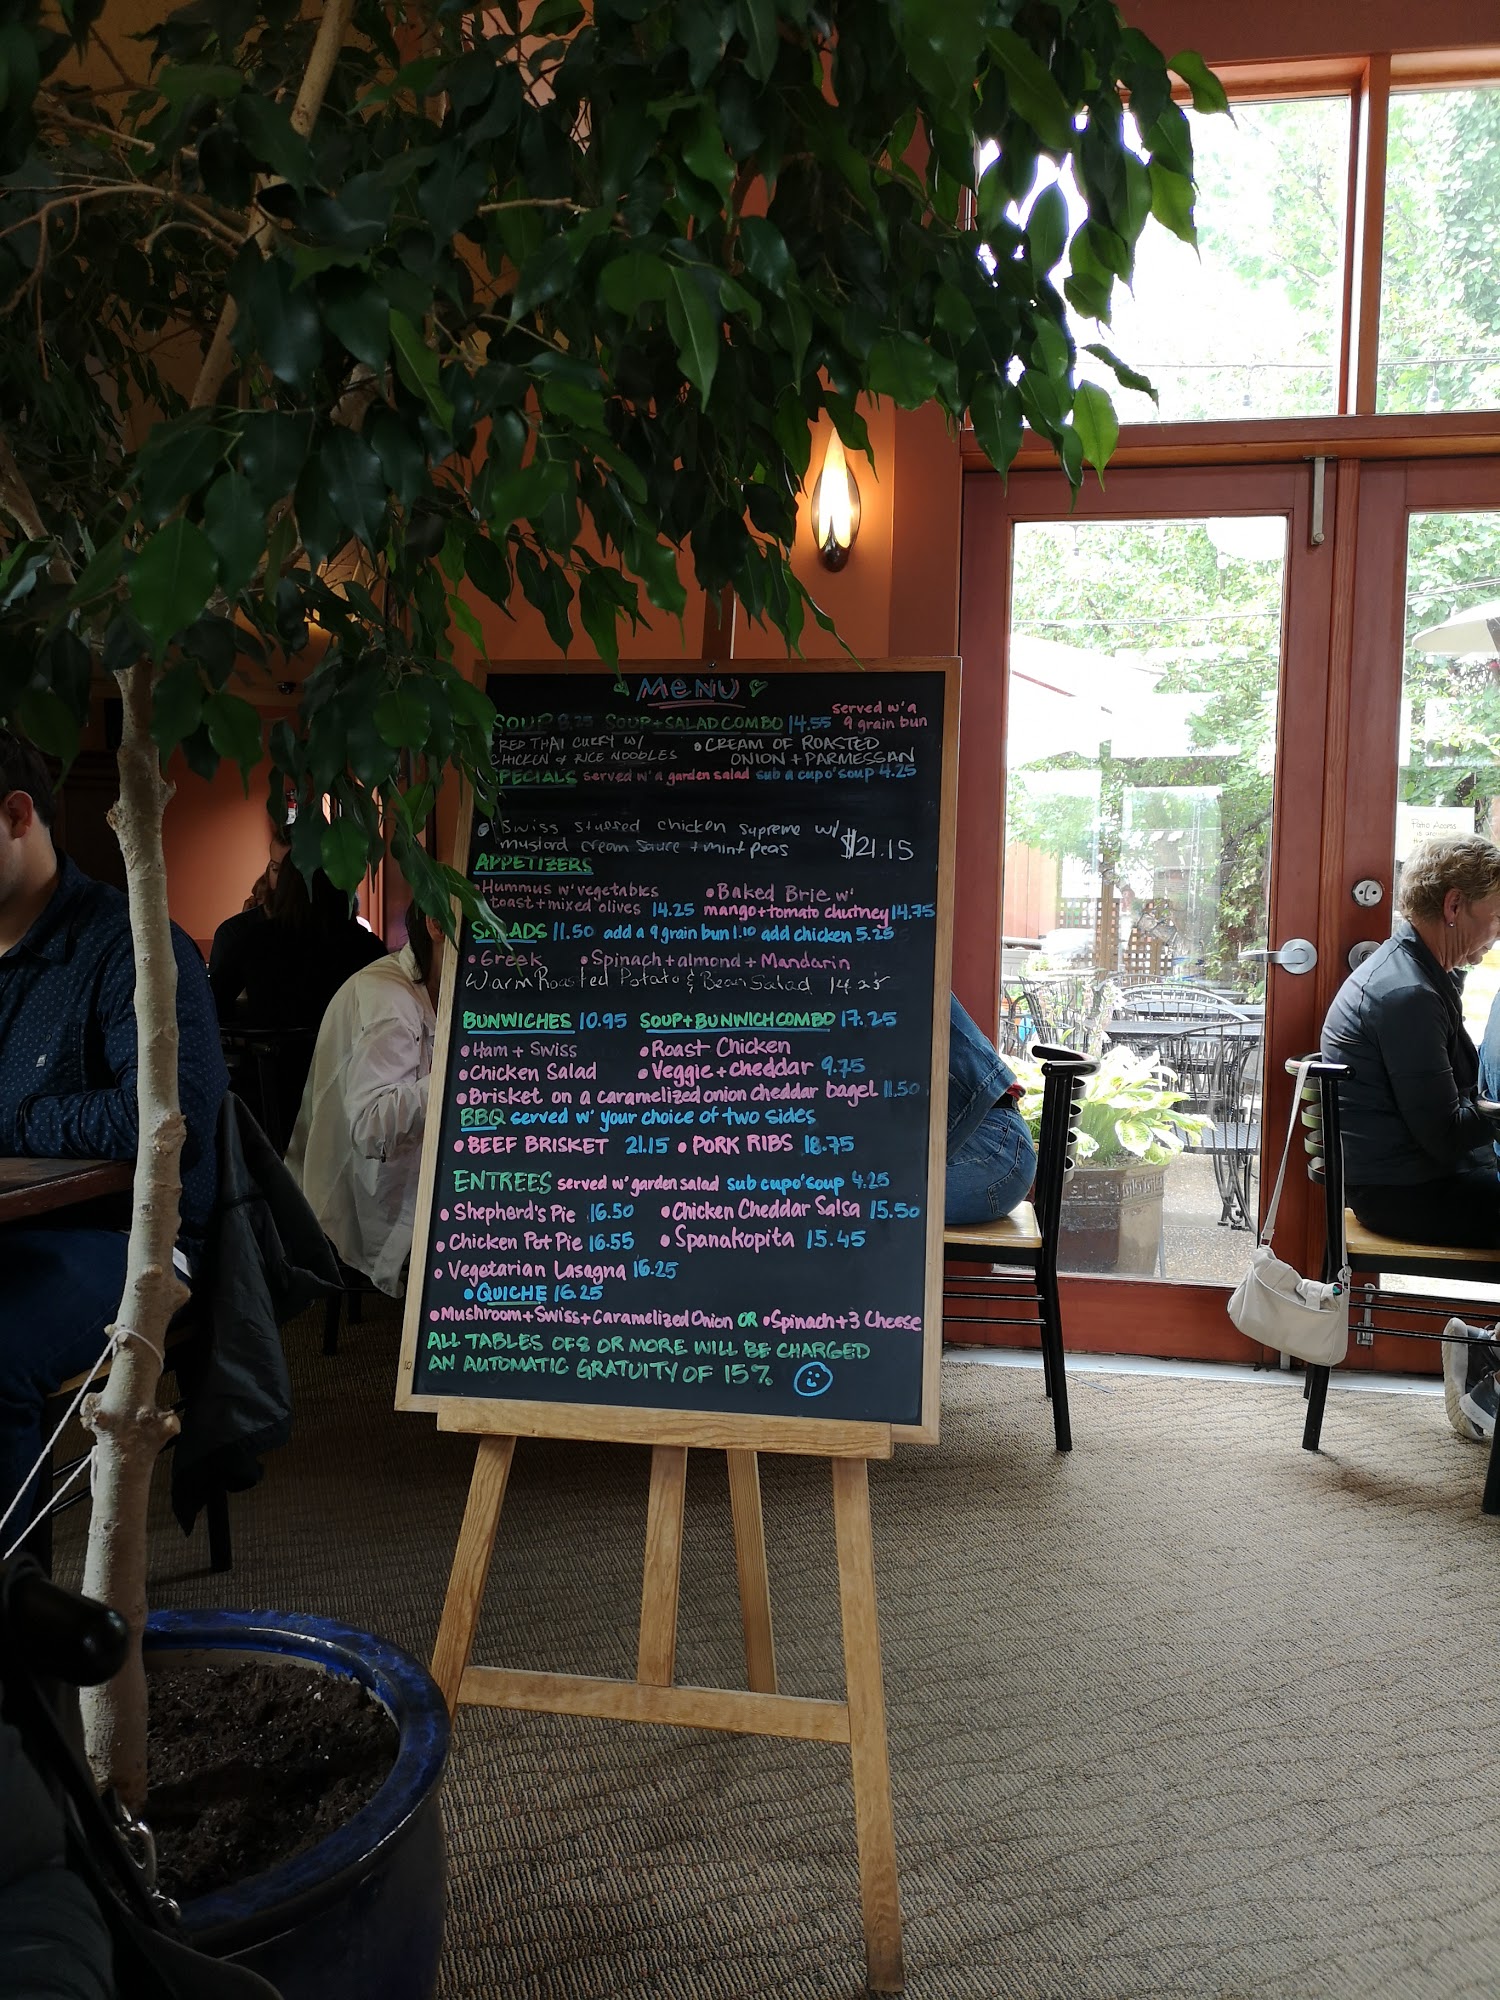 MENU
SOUP 8.25 SOUP+SALAD COMBO 14.55 served w/ a 9 grain bun
RED THAI CURRY W/ CHICKEN & RICE NOODLES
• CREAM OF ROASTED ONION + PARMESSAN
SPECIALS served w/ a garden salad sub a cup o' soup 4.25
• Swiss stuffed chicken supreme w/
mustard cream sauce + mint peas $21.15
APPETIZERS
• Hummus w/ vegetables
toast + mixed olives 14.25
• Baked Brie w/
mango + tomato chutney 14.75
SALADS 11.50 add a 9 grain bun 1.10 add chicken 5.25
• Greek • Spinach + almond + Mandarin
Warm Roasted Potato & Bean Salad 14.25
BUNWICHES 10.95 SOUP+BUNWICH COMBO 17.25
• Ham + Swiss • Roast Chicken
• Chicken Salad • Veggie + cheddar 9.75
• Brisket on a caramelized onion cheddar bagel 11.50
BBQ served w/ your choice of two sides
• BEEF BRISKET 21.15 • PORK RIBS 18.75
ENTREES served w/ garden salad sub cup o' soup 4.25
• Shepherd's Pie 16.50 • Chicken Cheddar Salsa 15.50
• Chicken Pot Pie 16.55 • Spanakopita 15.45
• Vegetarian Lasagna 16.25
• QUICHE 16.25
• Mushroom + Swiss + Caramelized Onion OR • Spinach + 3 Cheese
ALL TABLES OF 8 OR MORE WILL BE CHARGED
AN AUTOMATIC GRATUITY OF 15%